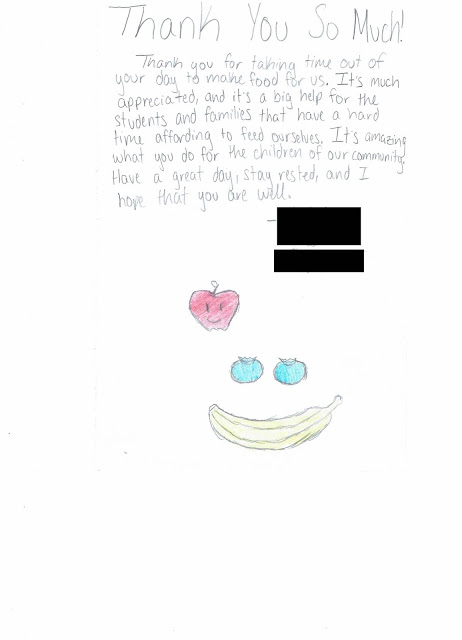 Thank You So Much!
Thank you for taking time out of
your day to make food for us. It's much
appreciated, and it's a big help for the
students and families that have a hard
time affording to feed ourselves. It's amazing
what you do for the children of our community.
Have a great day, stay rested, and I
hope that you are well.
-